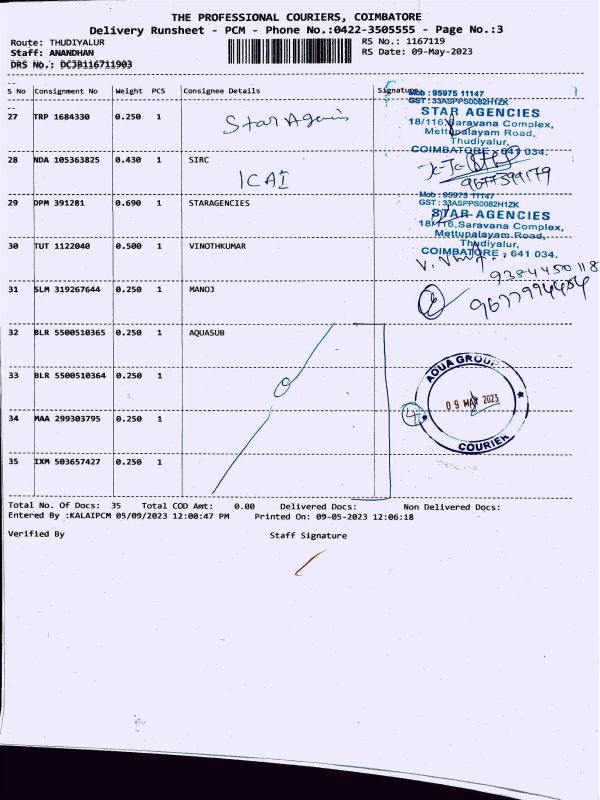 THE PROFESSIONAL COURIERS, COIMBATORE
Delivery Runsheet - PCM - Phone No.:0422-3505555 - Page No.:3
Route: THUDIYALUR RS No.: 1167119
Staff: ANANDHAN RS Date: 09-May-2023
DRS No.: DCJB116711903
S No Consignment No Weight PCS Consignee Details Signature
Mob : 95975 11147
GST : 33ASPPS0082H1ZK
STAR AGENCIES
18/116, Saravana Complex,
Mettupalayam Road,
Thudiyalur,
COIMBATORE - 641 034.
27 TRP 1684330 0.250 1 Star Agencis
28 NDA 105363825 0.430 1 SIRC
ICAI
9677399179
29 DPM 391281 0.690 1 STARAGENCIES
Mob : 95975 11147
GST : 33ASPPS0082H1ZK
STAR AGENCIES
18/116, Saravana Complex,
Mettupalayam Road,
Thudiyalur,
COIMBATORE - 641 034.
30 TUT 1122040 0.500 1 VINOTHKUMAR
9384450118
31 SLM 319267644 0.250 1 MANOJ
9677994454
32 BLR 5500510365 0.250 1 AQUASUB
33 BLR 5500510364 0.250 1
AQUA GROUP
09 MAY 2023
COURIER
34 MAA 299303795 0.250 1 4
35 IXM 503657427 0.250 1
Total No. Of Docs: 35 Total COD Amt: 0.00 Delivered Docs: Non Delivered Docs:
Entered By :KALAIPCM 05/09/2023 12:00:47 PM Printed On: 09-05-2023 12:06:18
Verified By Staff Signature